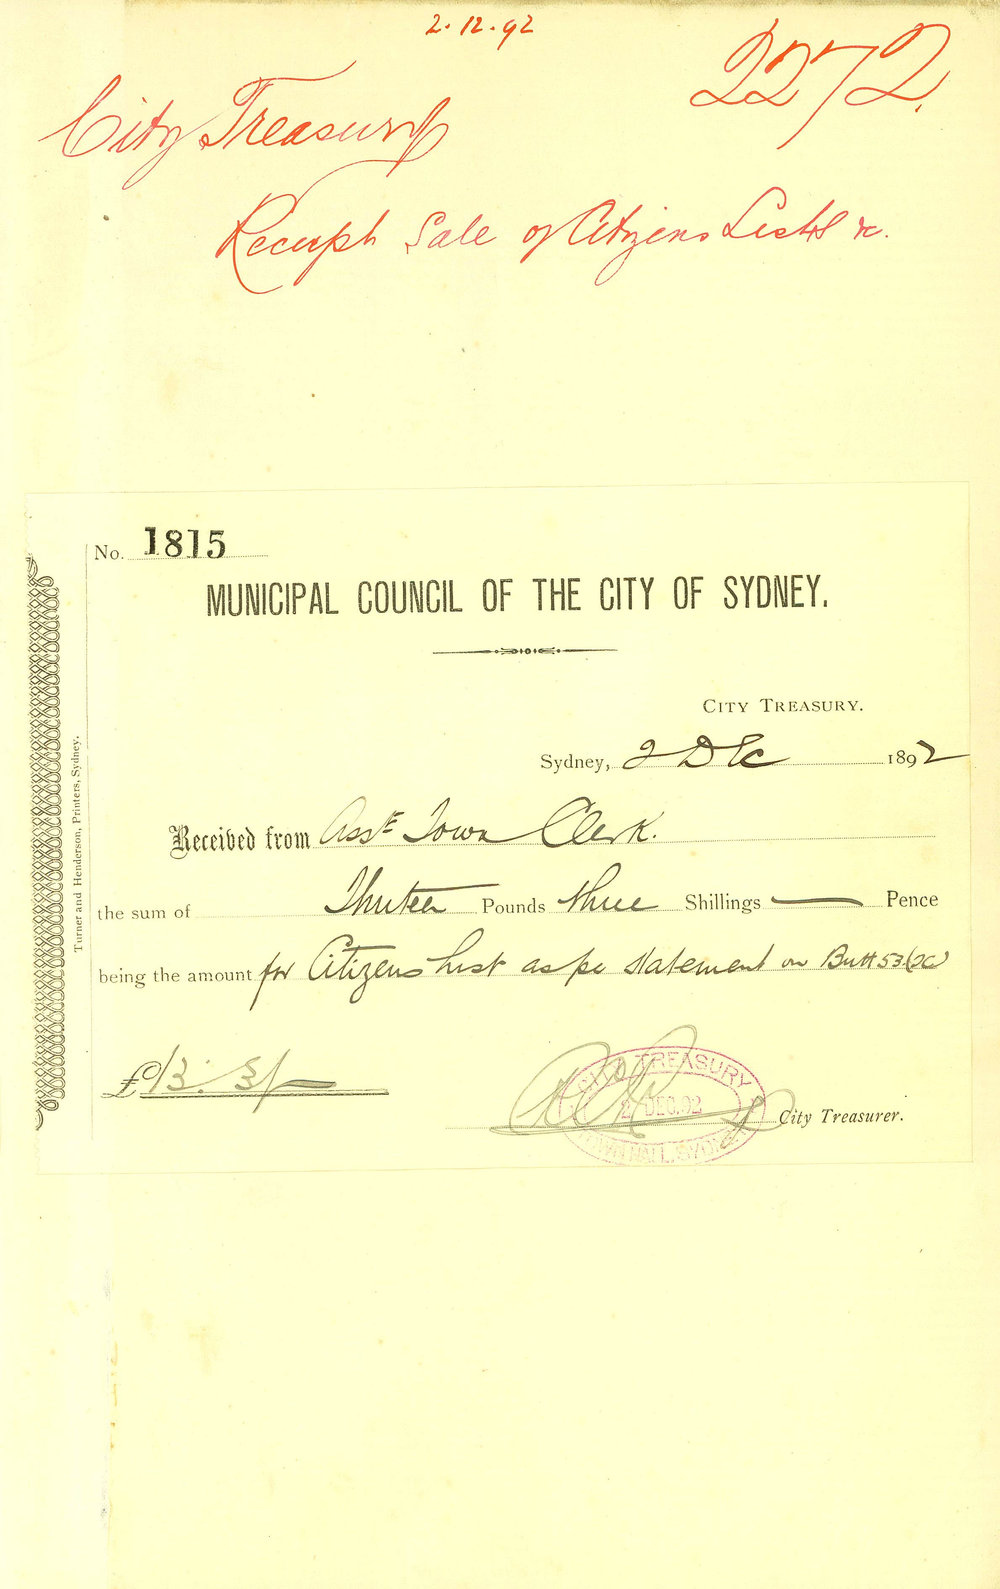 2.12.92
2272.
City Treasury
Receipt Sale of Citizens Lists &c.
No. 1815
MUNICIPAL COUNCIL OF THE CITY OF SYDNEY.
CITY TREASURY.
Sydney, 2 Dec 1892
Received from Asst Town Clerk.
the sum of Thirteen Pounds three Shillings — Pence
being the amount for Citizens List as per statement on Butt 53
£13: 3/-
City Treasurer.
CITY TREASURY
2 DEC. 92
TOWN HALL, SYDNEY
Turner and Henderson, Printers, Sydney.